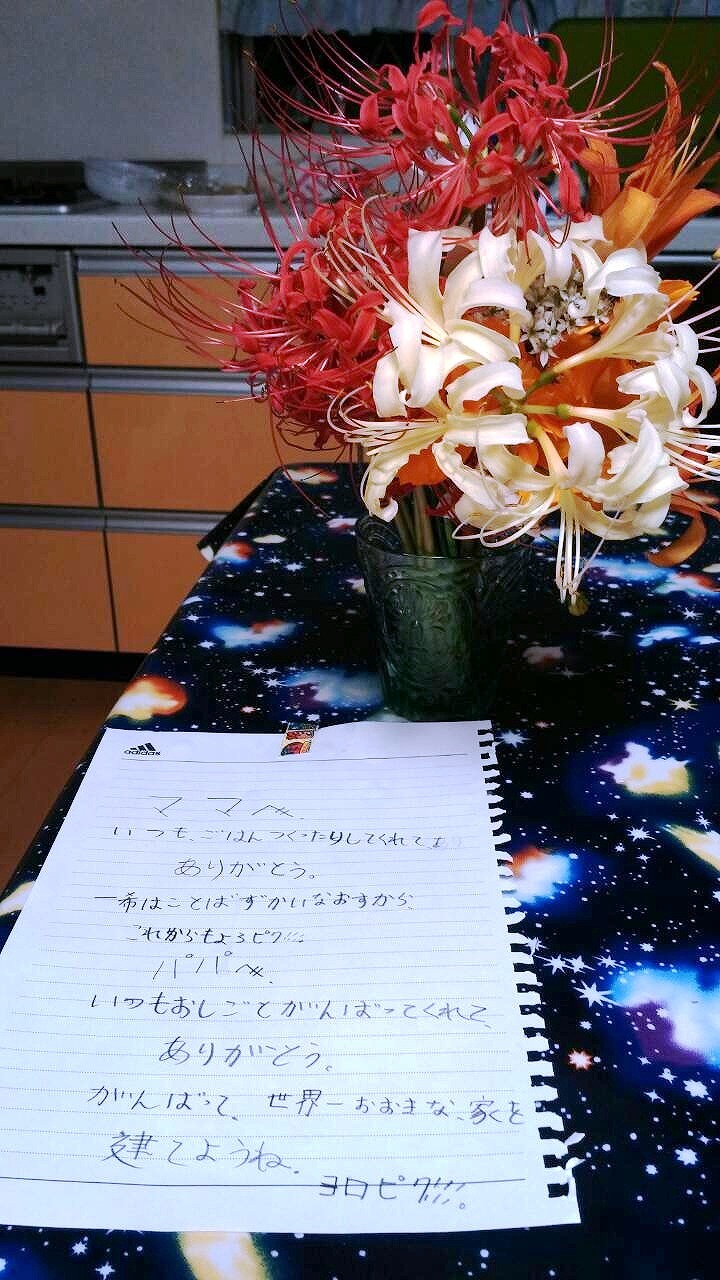 adidas
ママへ、
いつも、ごはんつくったりしてくれて、
ありがとう。
一希はことばずかいなおすから、
これからもよろピク!!!
パパへ、
いつもおしごとがんばってくれて、
ありがとう。
がんばって、世界一おおきな、家を
建てようね。
ヨロピク!!!。